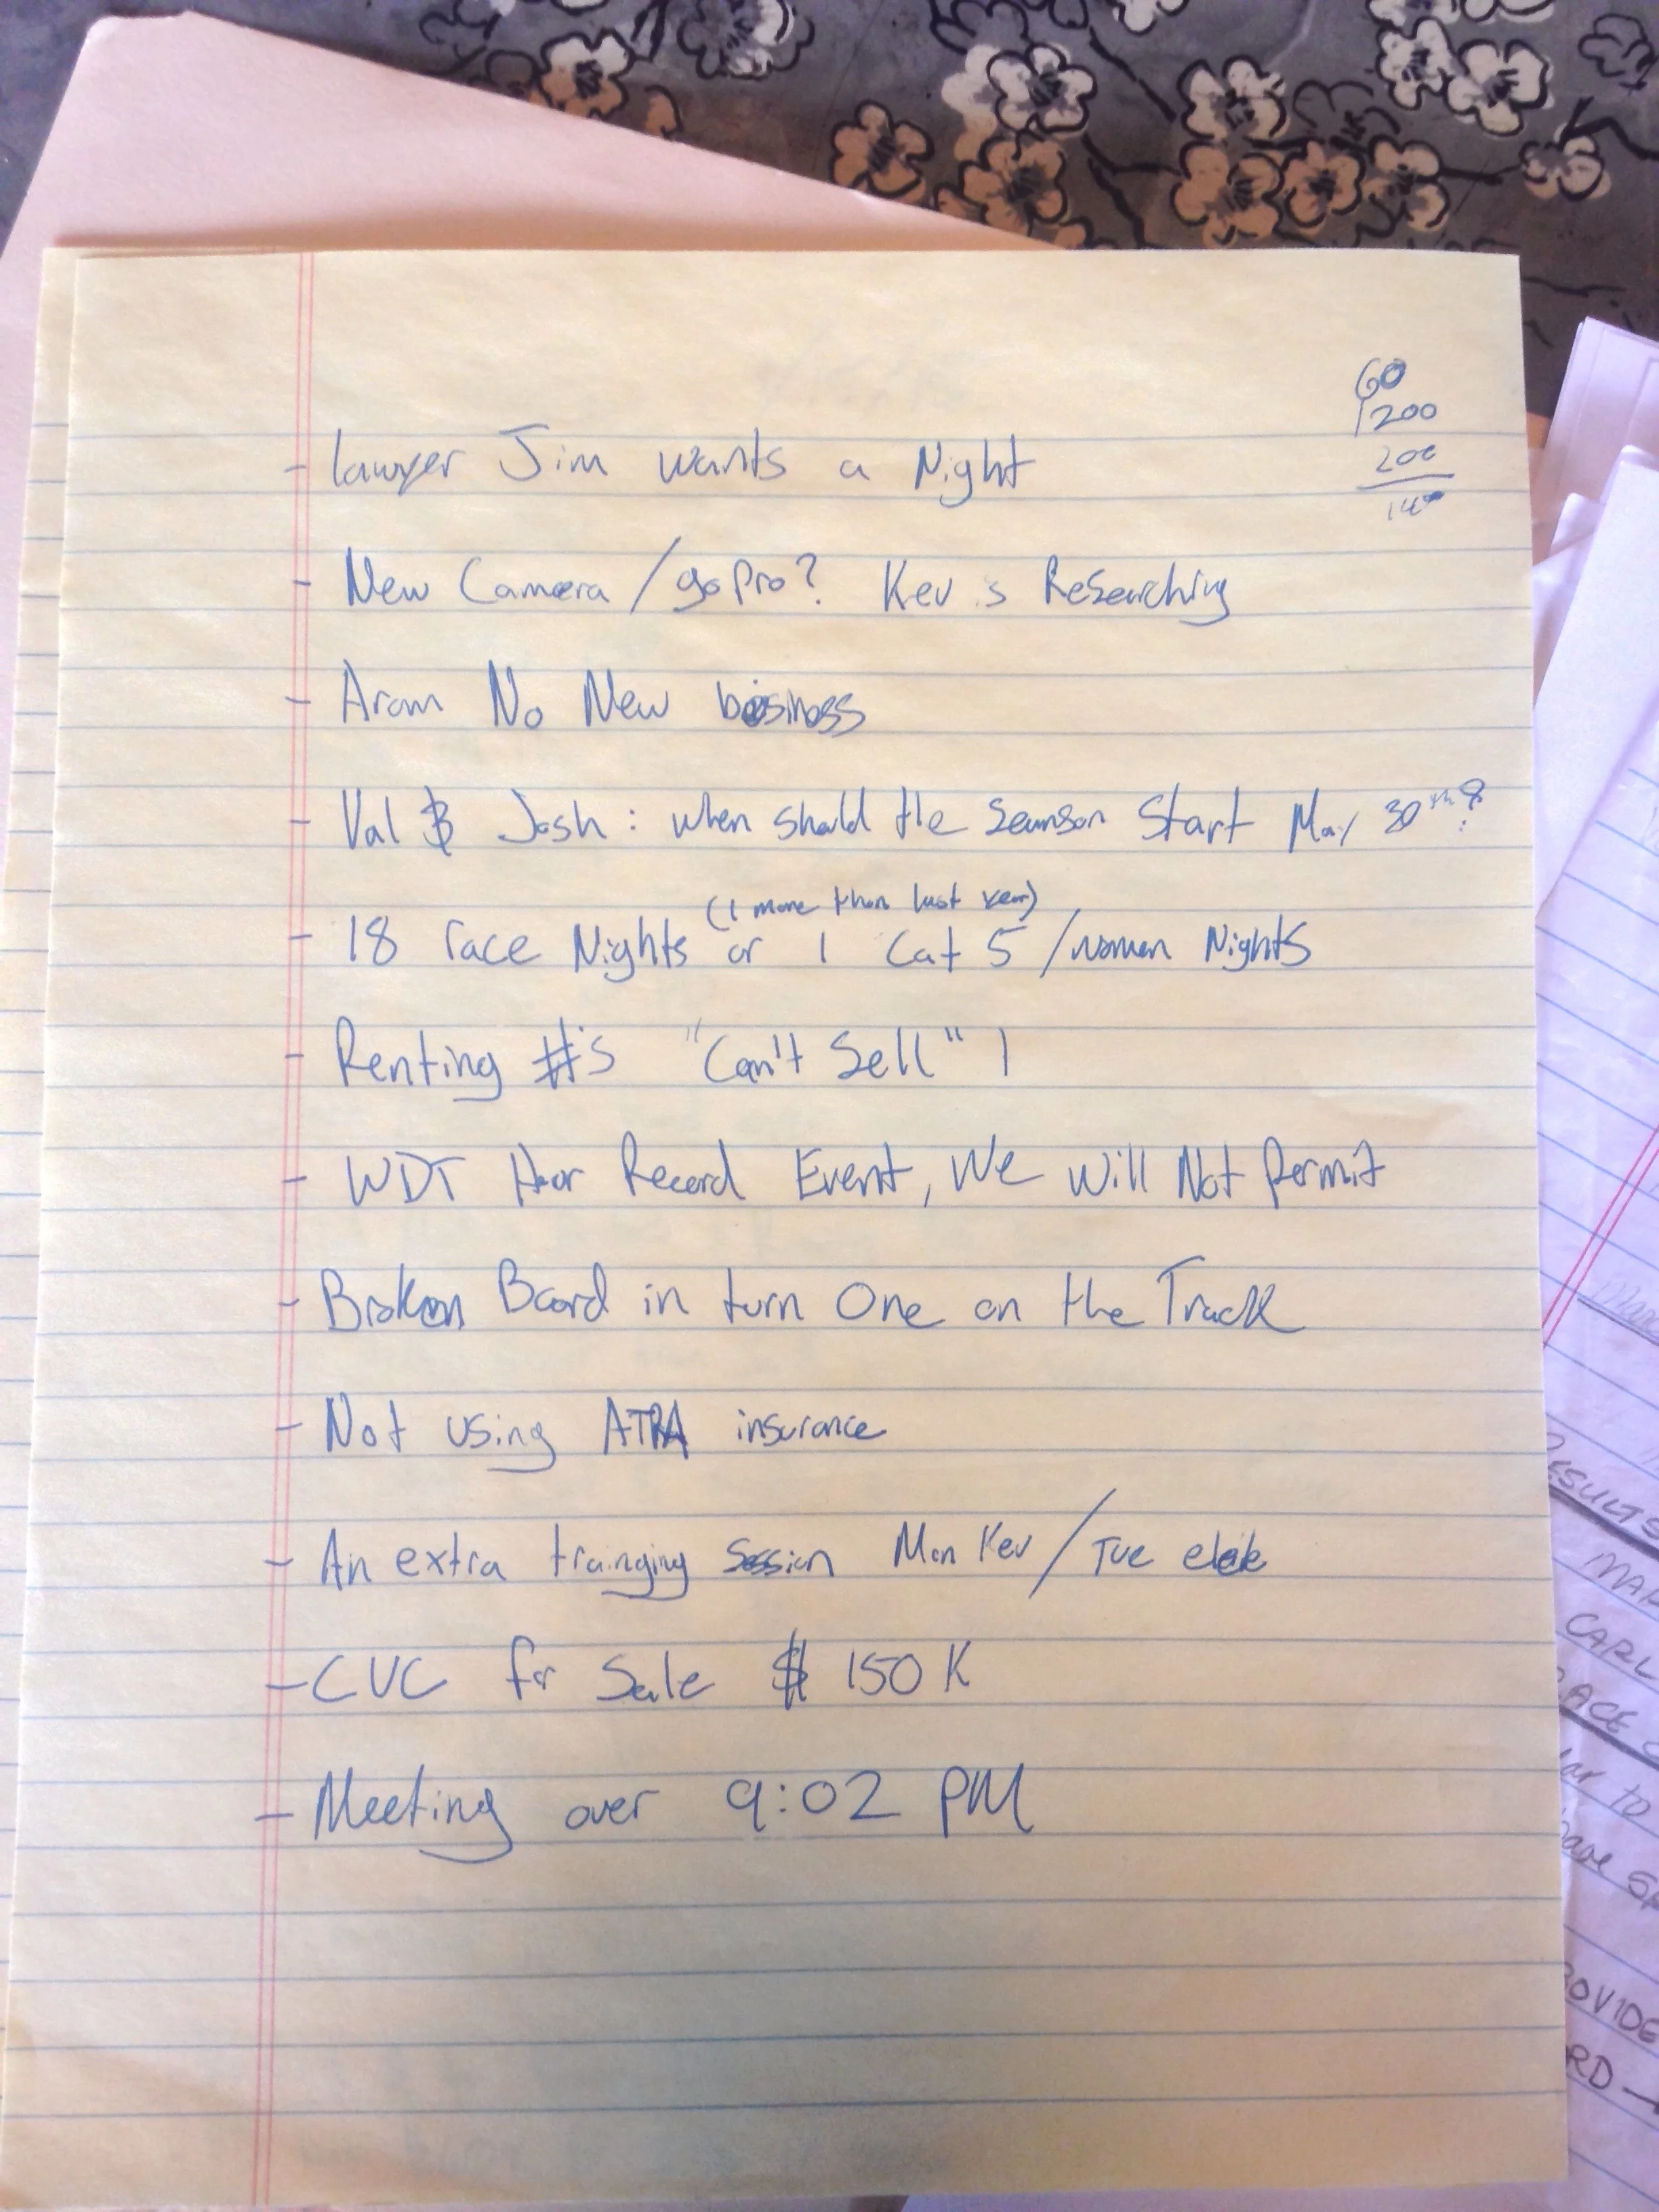 60
1200
200
- lawyer Jim wants a Night
- New Camera/go pro? Kev is Researching
- Aram No New business
- Val & Josh: when should the Seanson Start May 30th?
(1 more than last year)
- 18 race Nights or 1 Cat 5/women Nights
- Renting #'s "Can't Sell" !
- WDT Hour Record Event, We Will Not Permit
- Broken Board in turn One on the Track
- Not using ATRA insurance
- An extra trainging Session Mon Kev/Tue
- CVC for Sale $150K
- Meeting over 9:02 PM
RESULTS
CARL
RACE